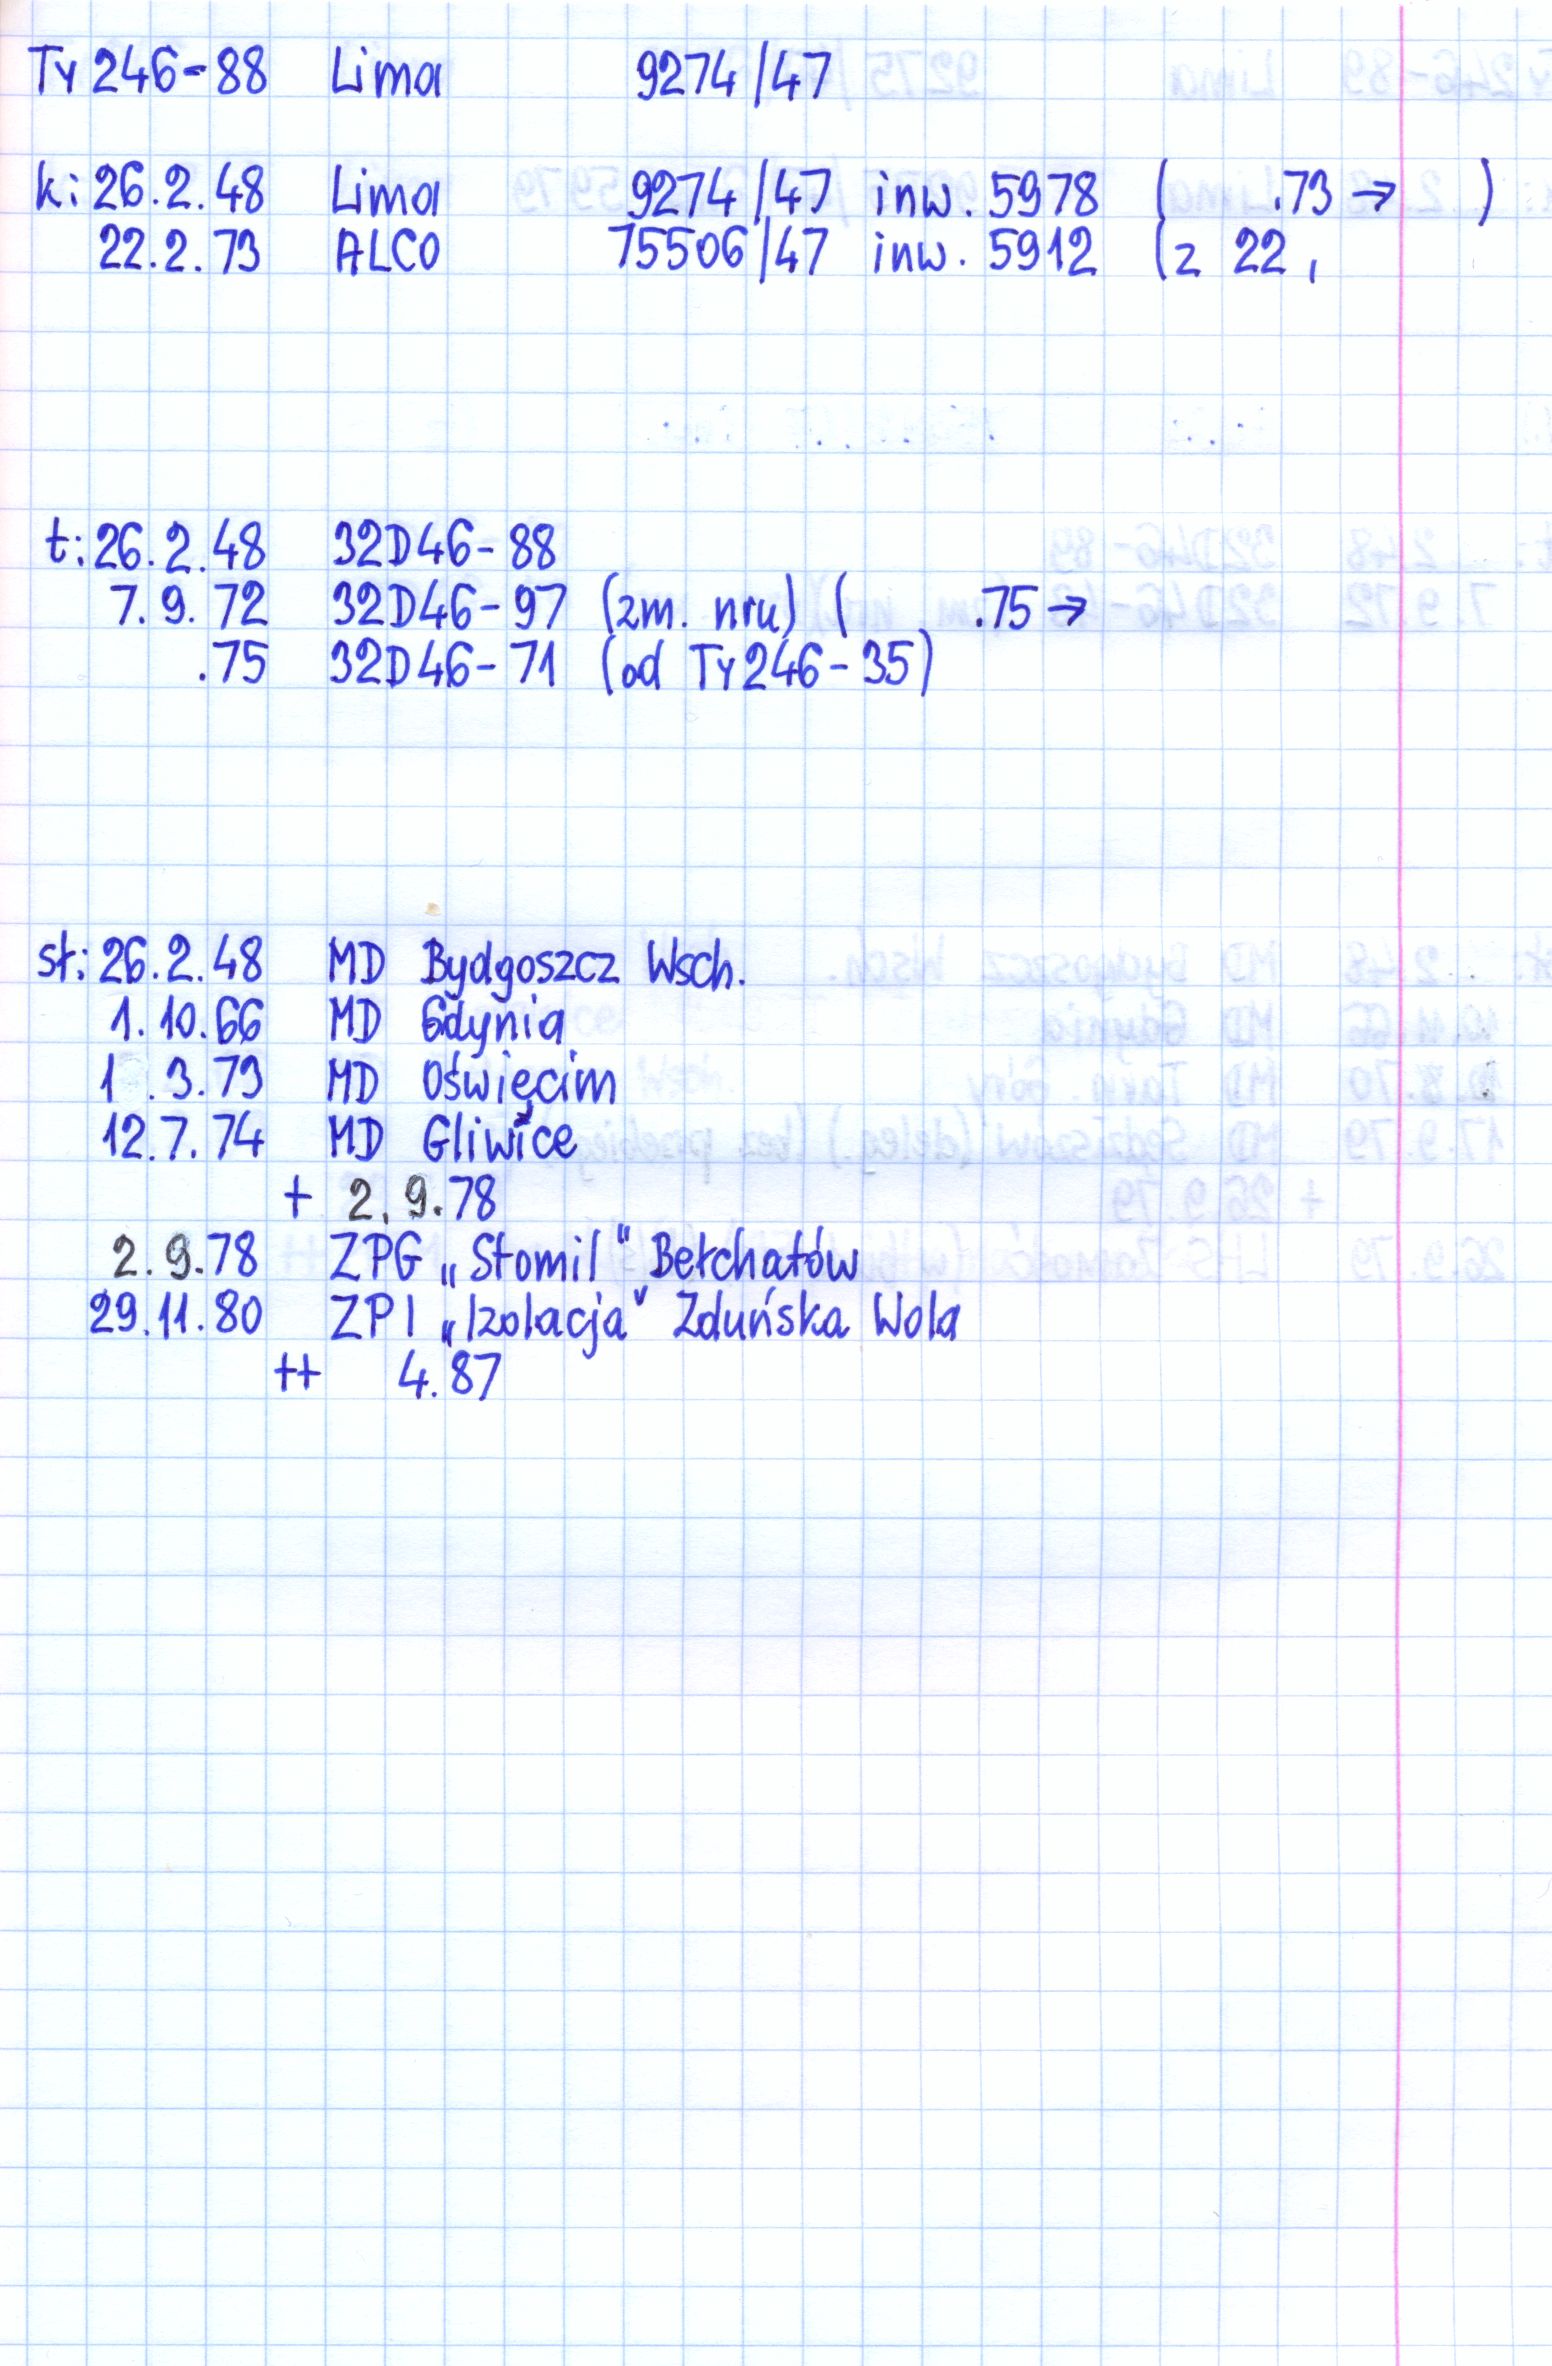 Ty 246-88 Lima 9274/47
k: 26.2.48 Lima 9274/47 inw. 5978 ( .73 → )
22.2.73 ALCO 75506/47 inw. 5912 (z 22,
t: 26.2.48 32D46-88
7.9.72 32D46-97 (zm. nru) ( .75 →
.75 32D46-71 (od Ty246-35)
st: 26.2.48 MD Bydgoszcz Wsch.
1.10.66 MD Gdynia
1 .3.73 MD Oświęcim
12.7.74 MD Gliwice
+ 2.9.78
2.9.78 ZPG „Stomil" Bełchatów
29.11.80 ZPI „Izolacja" Zduńska Wola
++ 4.87